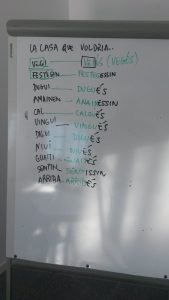 LA CASA QUE VOLDRIA..
VEGI VEIÉS (VEGÉS)
FESTEGIN FESTEGESSIN
DUGUI DUGUÉS
ANAINEN ANAINESSIN
CAL CALGUÉS
VINGUI VINGUÉS
DIGUI DIGUÉS
NIUÏ NIUÉS
GUAITI GUAITÉS
SENTIN SENTISSIN
ARRIBA ARRIBÉS